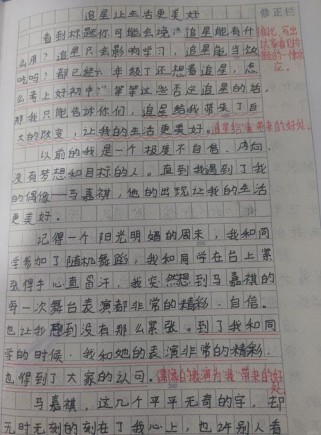 追星让生活更美好
修正栏
看到标题你可能会说:"追星能有什
么用?追星只会影响学习,追星能当饭
吃吗?都已经 年级了还想着追星,怎
么考上好初中?"等等这些否定追星的话。
那我只能告诉你们,追星给我带来了巨
大的改变,让我的生活更美好。追星给 带来的好处
以前的我是一个极度不自信、内向、
没有梦想和目标的人。直到我遇到了我
的偶像——马嘉祺,他的出现让我的生活
更美好。
记得一个阳光明媚的周末,我和同
学参加了随机舞蹈,我和同学在台上紧
张得手心直冒汗,我突然想到马嘉祺的
每一次舞台表演都非常的精彩、自信。
也让我感到没有那么紧张。到了我和同
学的时候,我和她的表演非常的精彩,
也得到了大家的认可。偶像的 为我带来的好
处
马嘉祺,这几个平平无奇的字,却
无时无刻的刻在了我心上,也许别人看